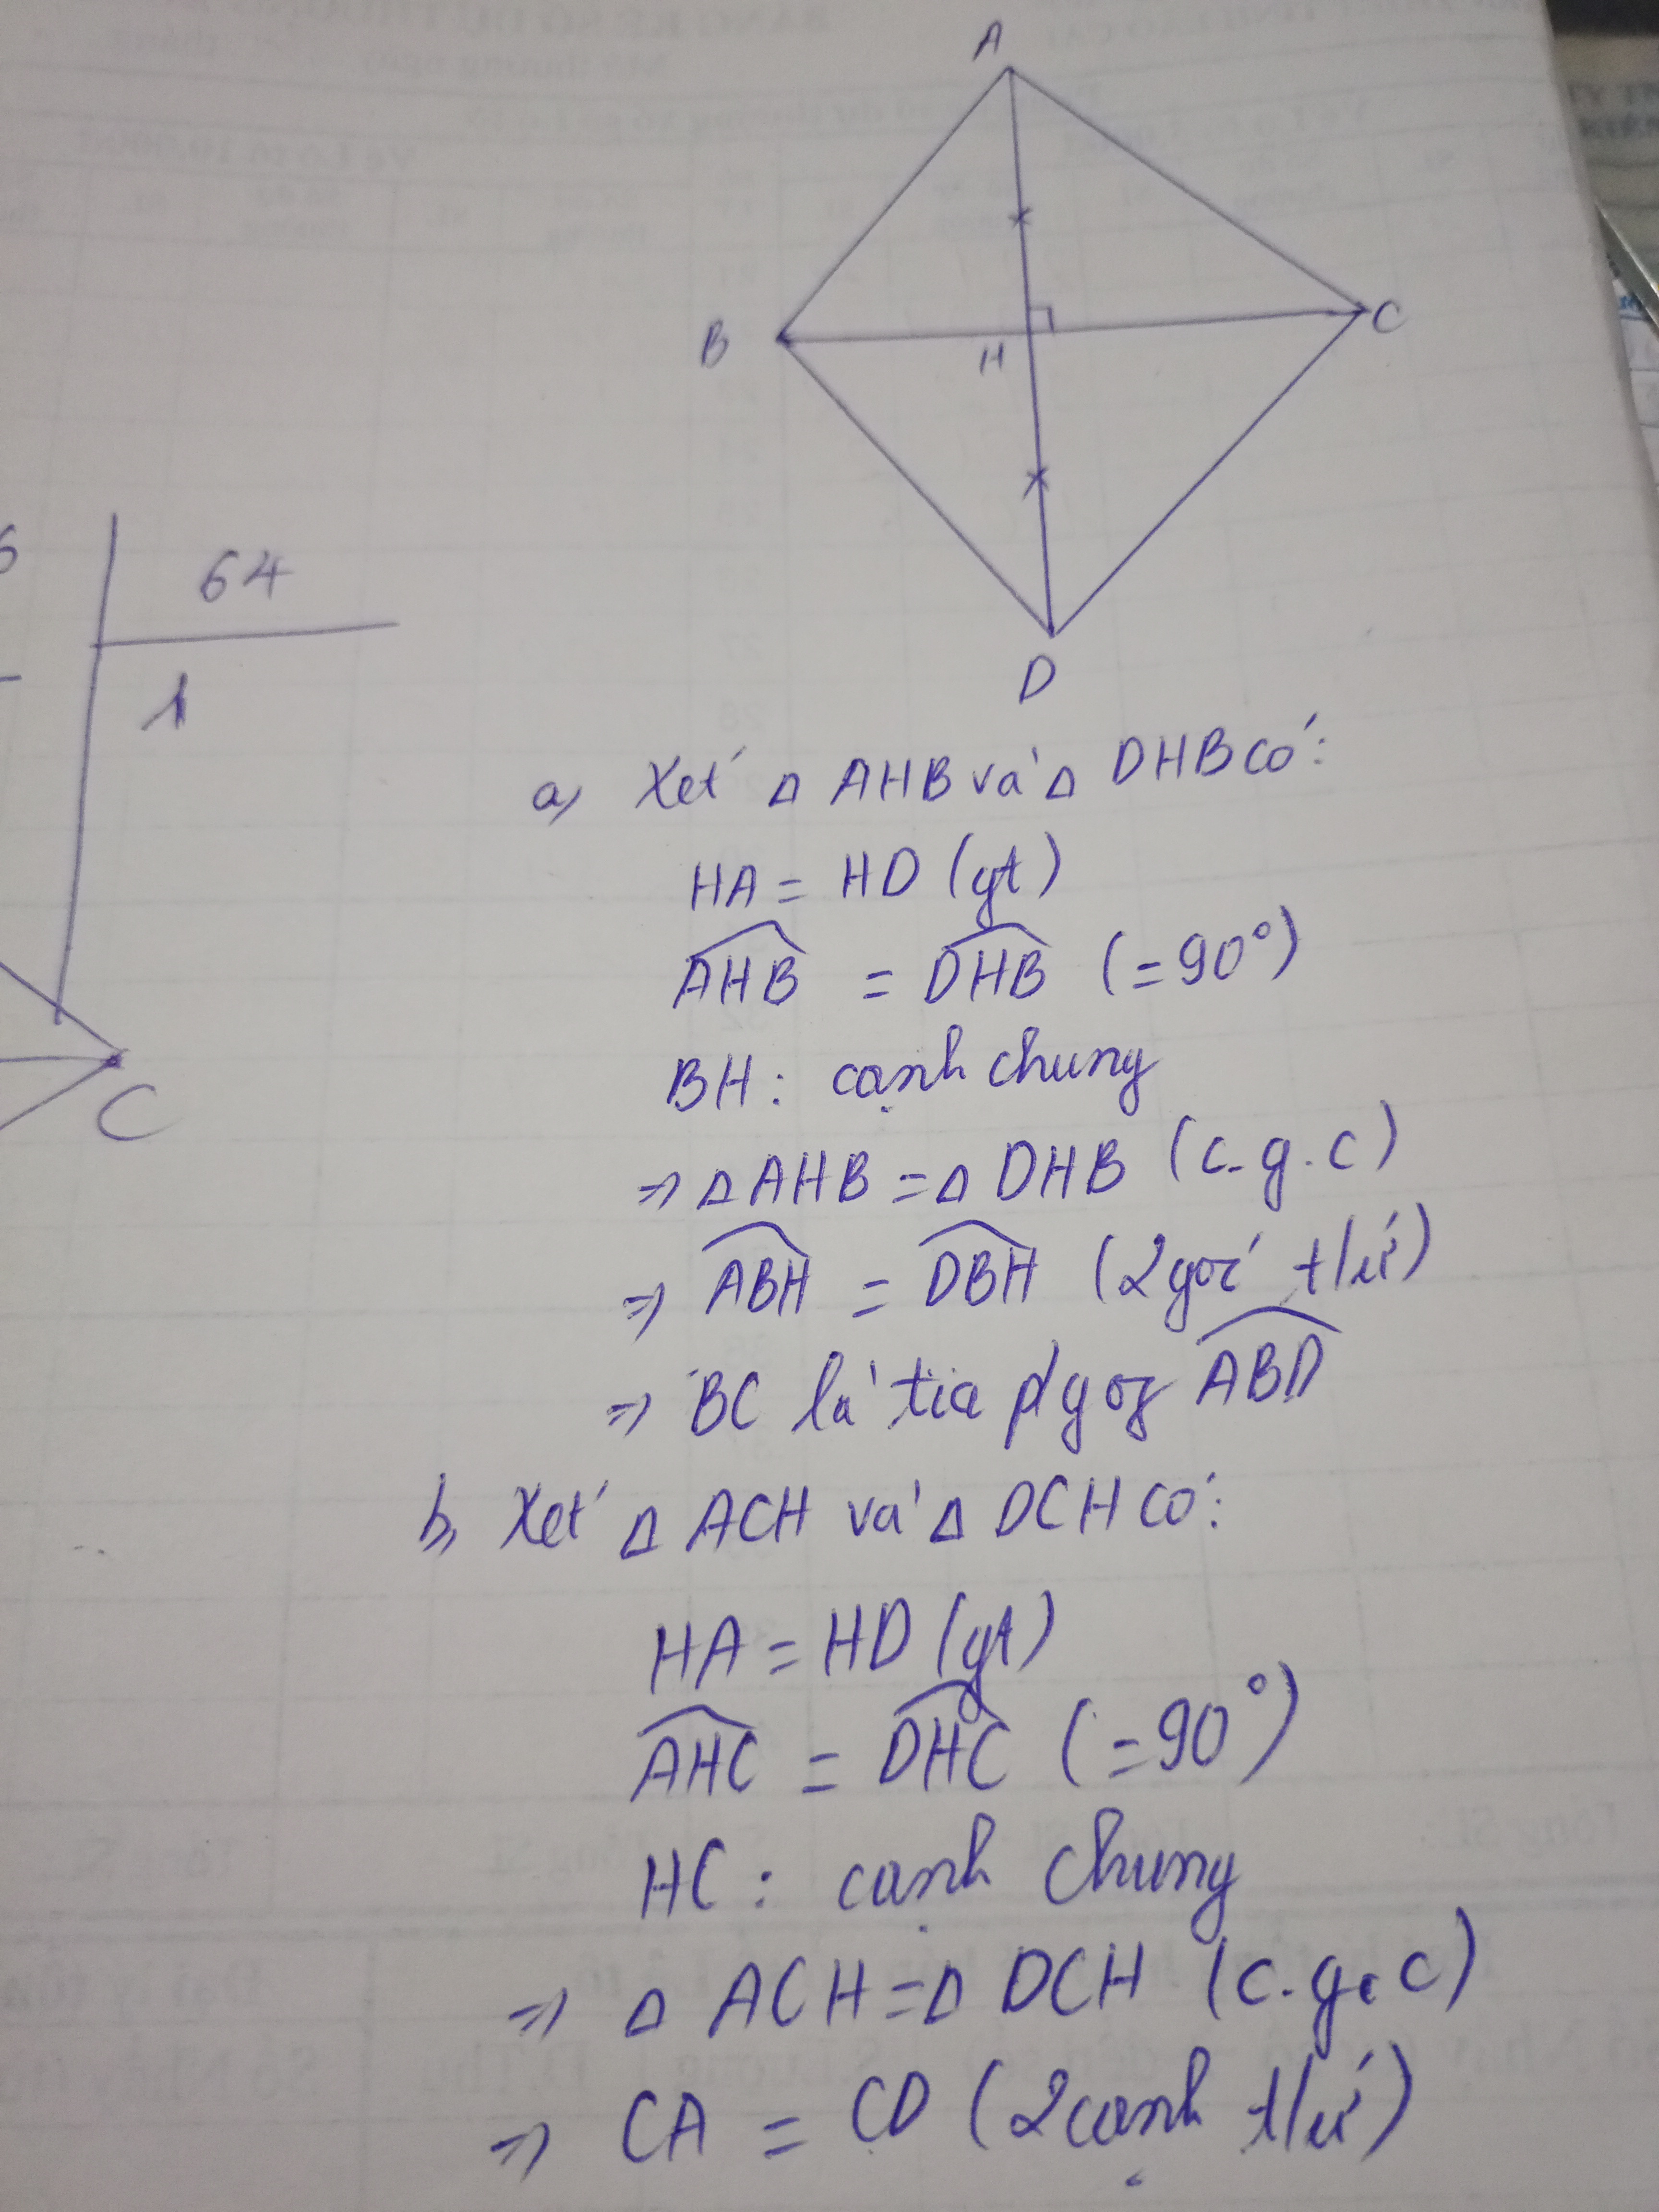 A
B
H
C
D
64
1
C
a, Xét Δ AHB và Δ DHB có:
HA = HD (gt)
AHB = DHB (=90°)
BH: cạnh chung
=> Δ AHB = Δ DHB (c.g.c)
=> ABH = DBH (2 góc t/ứ)
=> BC là tia p/g of ABD
b, Xét Δ ACH và Δ DCH có:
HA = HD (gt)
AHC = DHC (=90°)
HC: cạnh chung
=> Δ ACH = Δ DCH (c.g.c)
=> CA = CD (2 cạnh t/ứ)